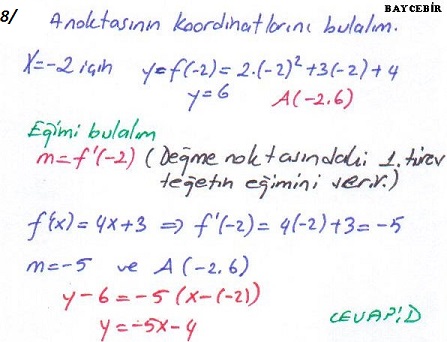 BAYCEBİR
8/ A noktasının koordinatlarını bulalım.
x=-2 için y=f(-2)=2.(-2)²+3(-2)+4
y=6 A(-2.6)
Eğimi bulalım
m=f'(-2) (Değme noktasındaki 1. türev
teğetin eğimini verir.)
f'(x)=4x+3 ⇒ f'(-2)=4(-2)+3=-5
m=-5 ve A(-2.6)
y-6=-5(x-(-2))
y=-5x-4
CEVAP:D